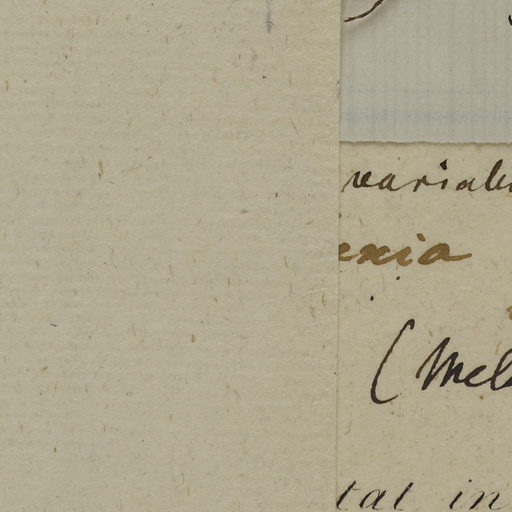 variab
exia
(Mel
tat in